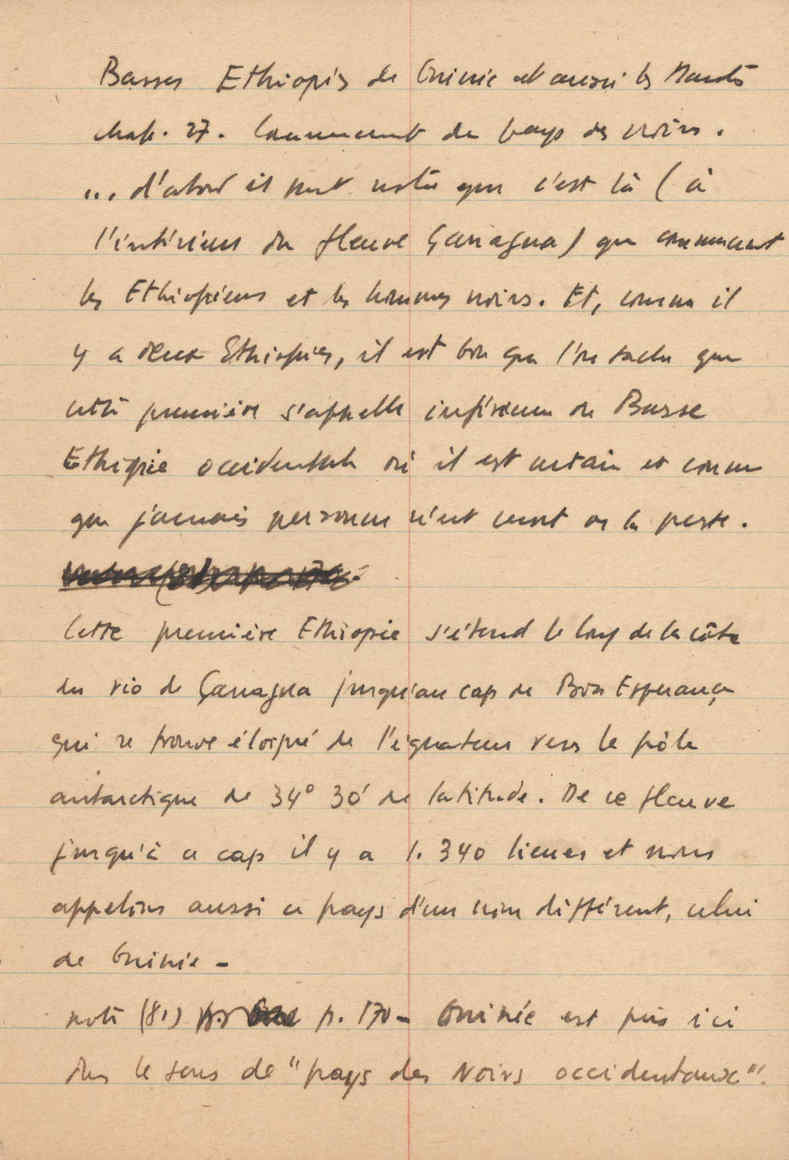 Basses Ethiopies de Guinée et aussi les
chap. 27. Commencement du pays des noirs.
... d'abord il faut noter que c'est là (à
l'intérieur du fleuve Çanagua) que commencent
les Ethiopiens et les hommes noirs. Et, comme il
y a deux Ethiopies, il est bon que l'on sache que
cette première s'appelle inférieure ou Basse
Ethiopie occidentale où il est certain et connu
que jamais personne n'est mort de la peste.
Cette première Ethiopie s'étend le long de la côte
du rio de Çanagua jusqu'au cap de Bon Esperança
qui se trouve éloigné de l'équateur vers le pôle
antarctique de 34° 30' de latitude. De ce fleuve
jusqu'à ce cap il y a 1.340 lieues et nous
appelons aussi ce pays d'un nom différent, celui
de Guinée -
note (81) p. 170 - Guinée est pris ici
dans le sens de "pays des Noirs occidentaux".